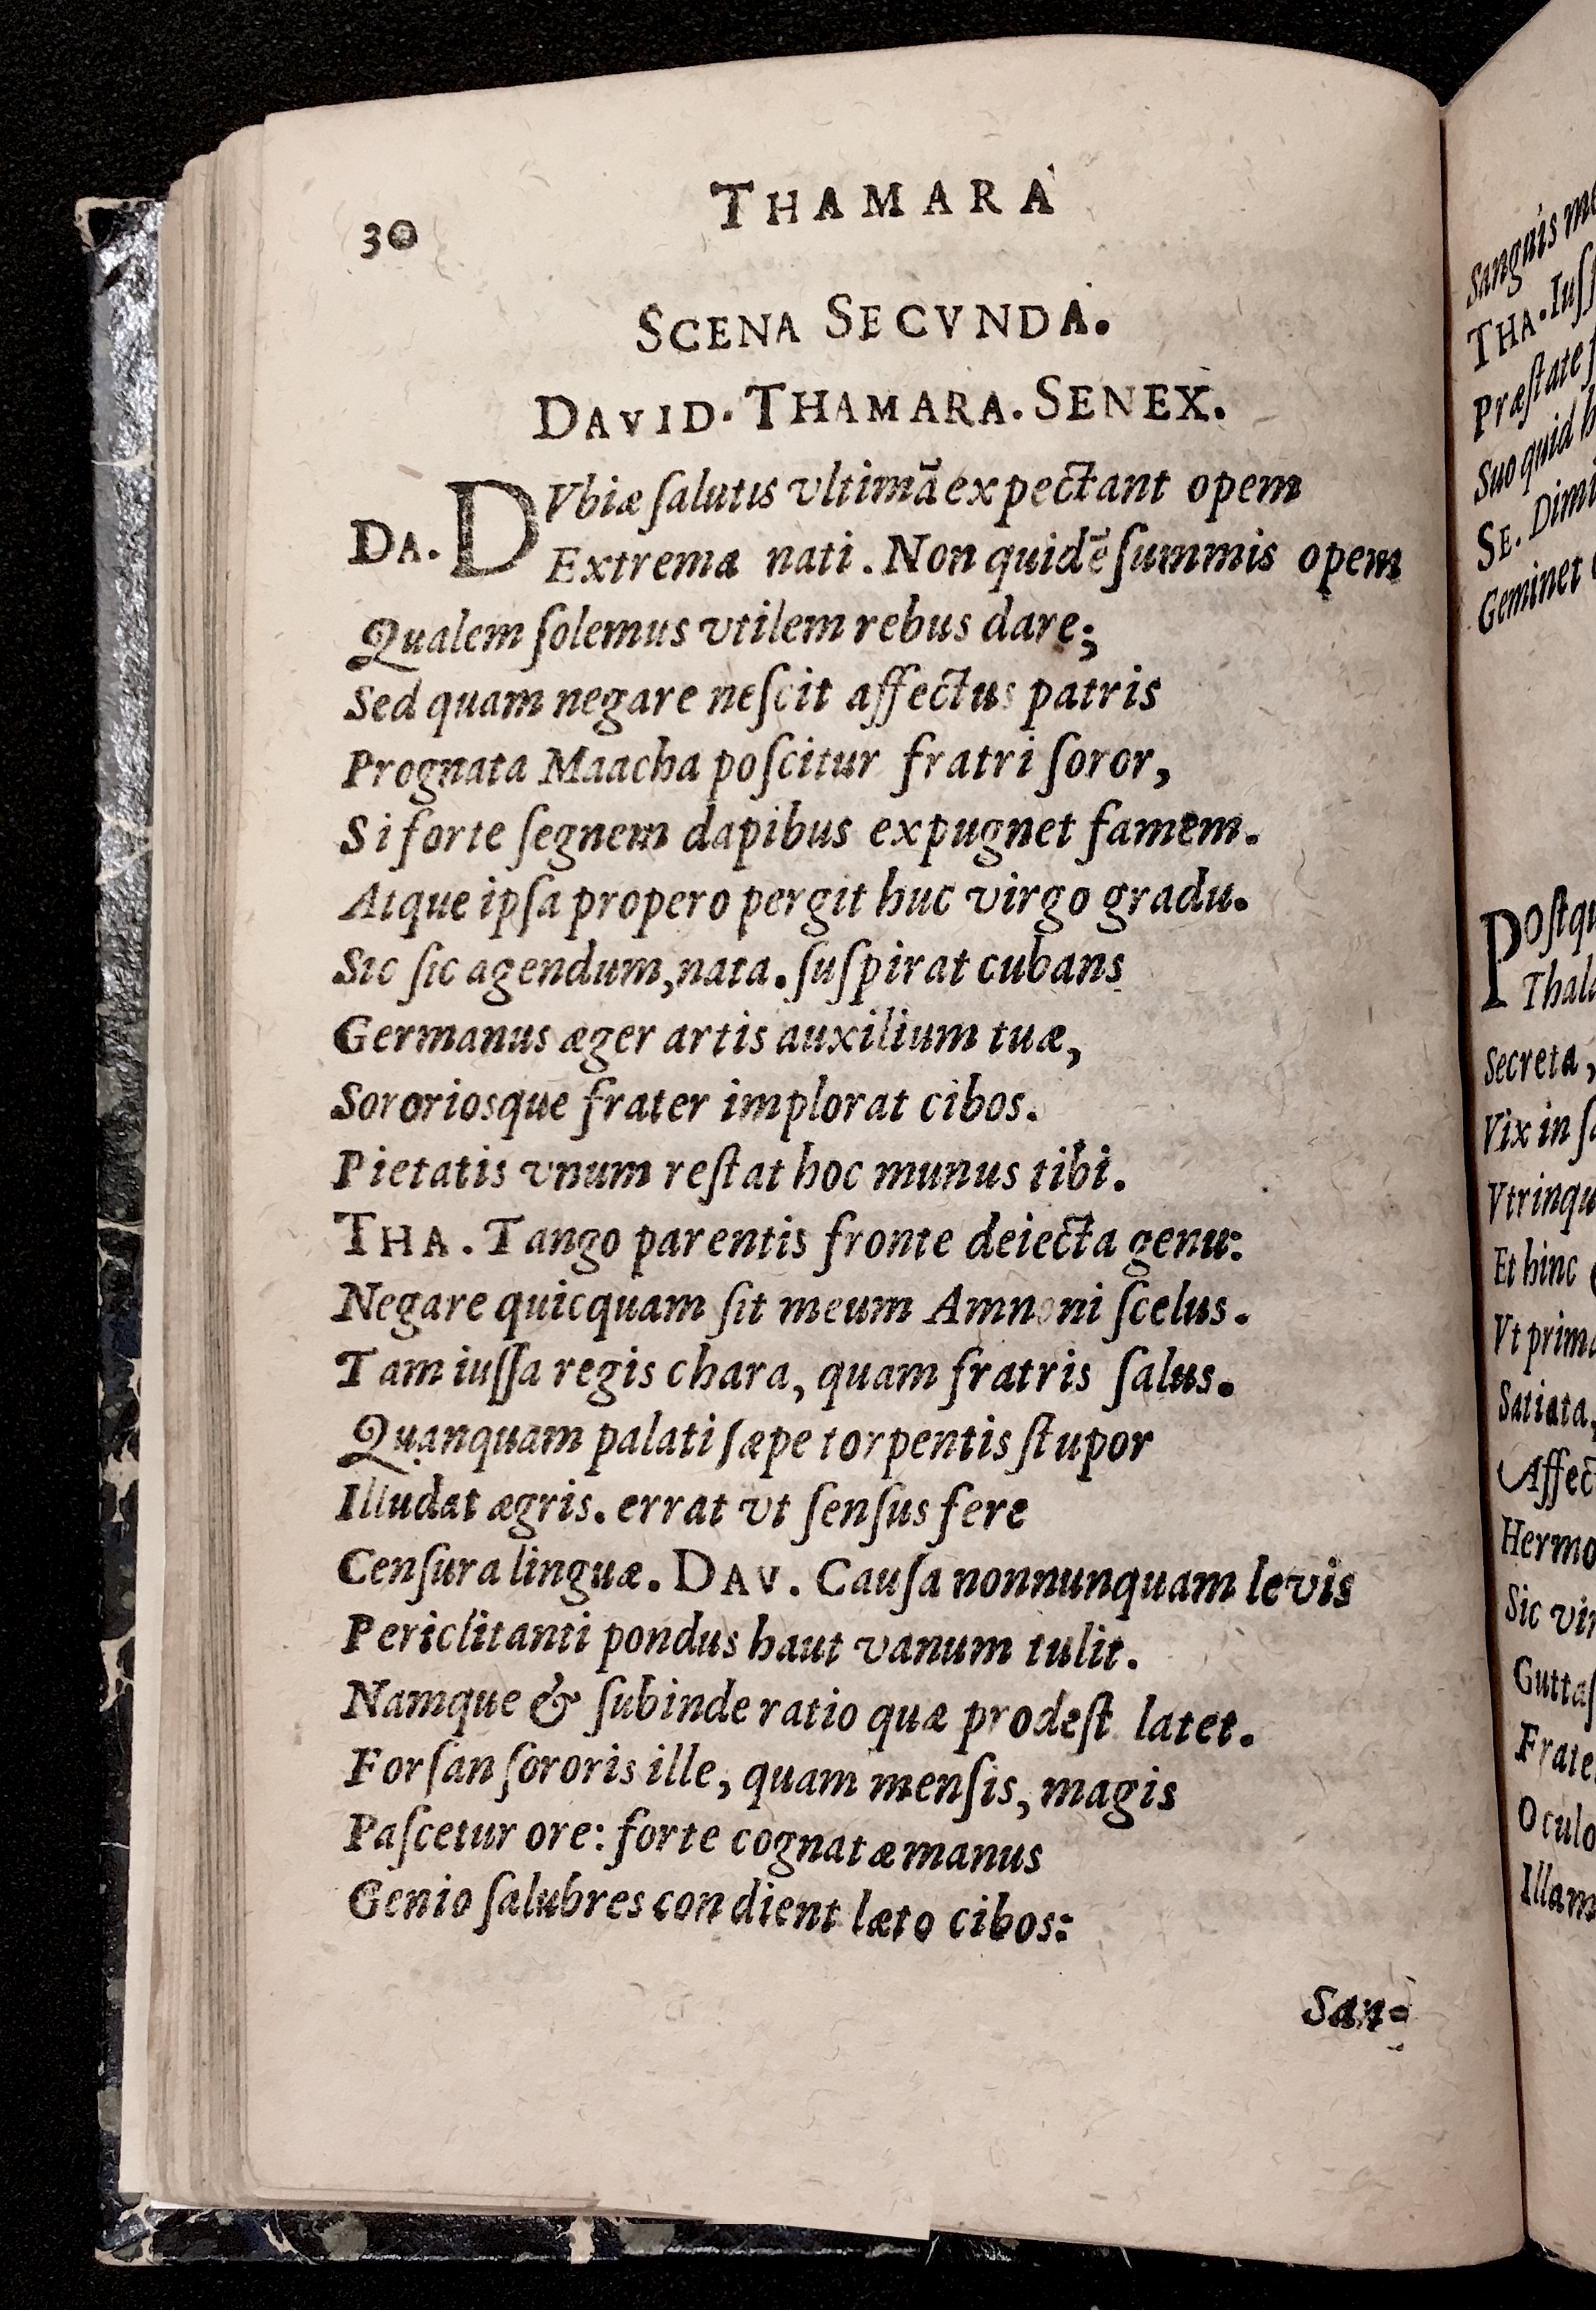 30 THAMARA
SCENA SECVNDA.
DAVID. THAMARA. SENEX.
DA. DVbiæ ſalutis vltimā expectant opem
Extrema nati. Non quidē ſummis opem
Qualem ſolemus vtilem rebus dare;
Sed quam negare neſcit affectus patris
Prognata Maacha poſcitur fratri ſoror,
Si forte ſegnem dapibus expugnet famem.
Atque ipſa propero pergit huc virgo gradu.
Sic ſic agendum, nata. ſuſpirat cubans
Germanus æger artis auxilium tuæ,
Sororiosque frater implorat cibos.
Pietatis vnum reſtat hoc munus tibi.
THA. Tango parentis fronte deiecta genu:
Negare quicquam ſit meum Amnoni ſcelus.
Tam iuſſa regis chara, quam fratris ſalus.
Quanquam palati ſæpe torpentis ſtupor
Illudat ægris. errat vt ſenſus fere
Cenſura linguæ. DAV. Cauſa nonnunquam levis
Periclitanti pondus haut vanum tulit.
Namque & ſubinde ratio quæ prodeſt latet.
Forſan ſororis ille, quam menſis, magis
Paſcetur ore: forte cognatæ manus
Genio ſalubres condient læto cibos:
San-
Sanguis
THA. Iuſſ
Præſtate
Suo quid
SE. Dimi
Geminet
Poſtqu
Thala
Secreta,
Vix in
Vtrinqu
Et hinc
Vt prima
Satiata,
Affect
Hermo
Sic vir
Guttaſ
Frate
Oculo
Illam